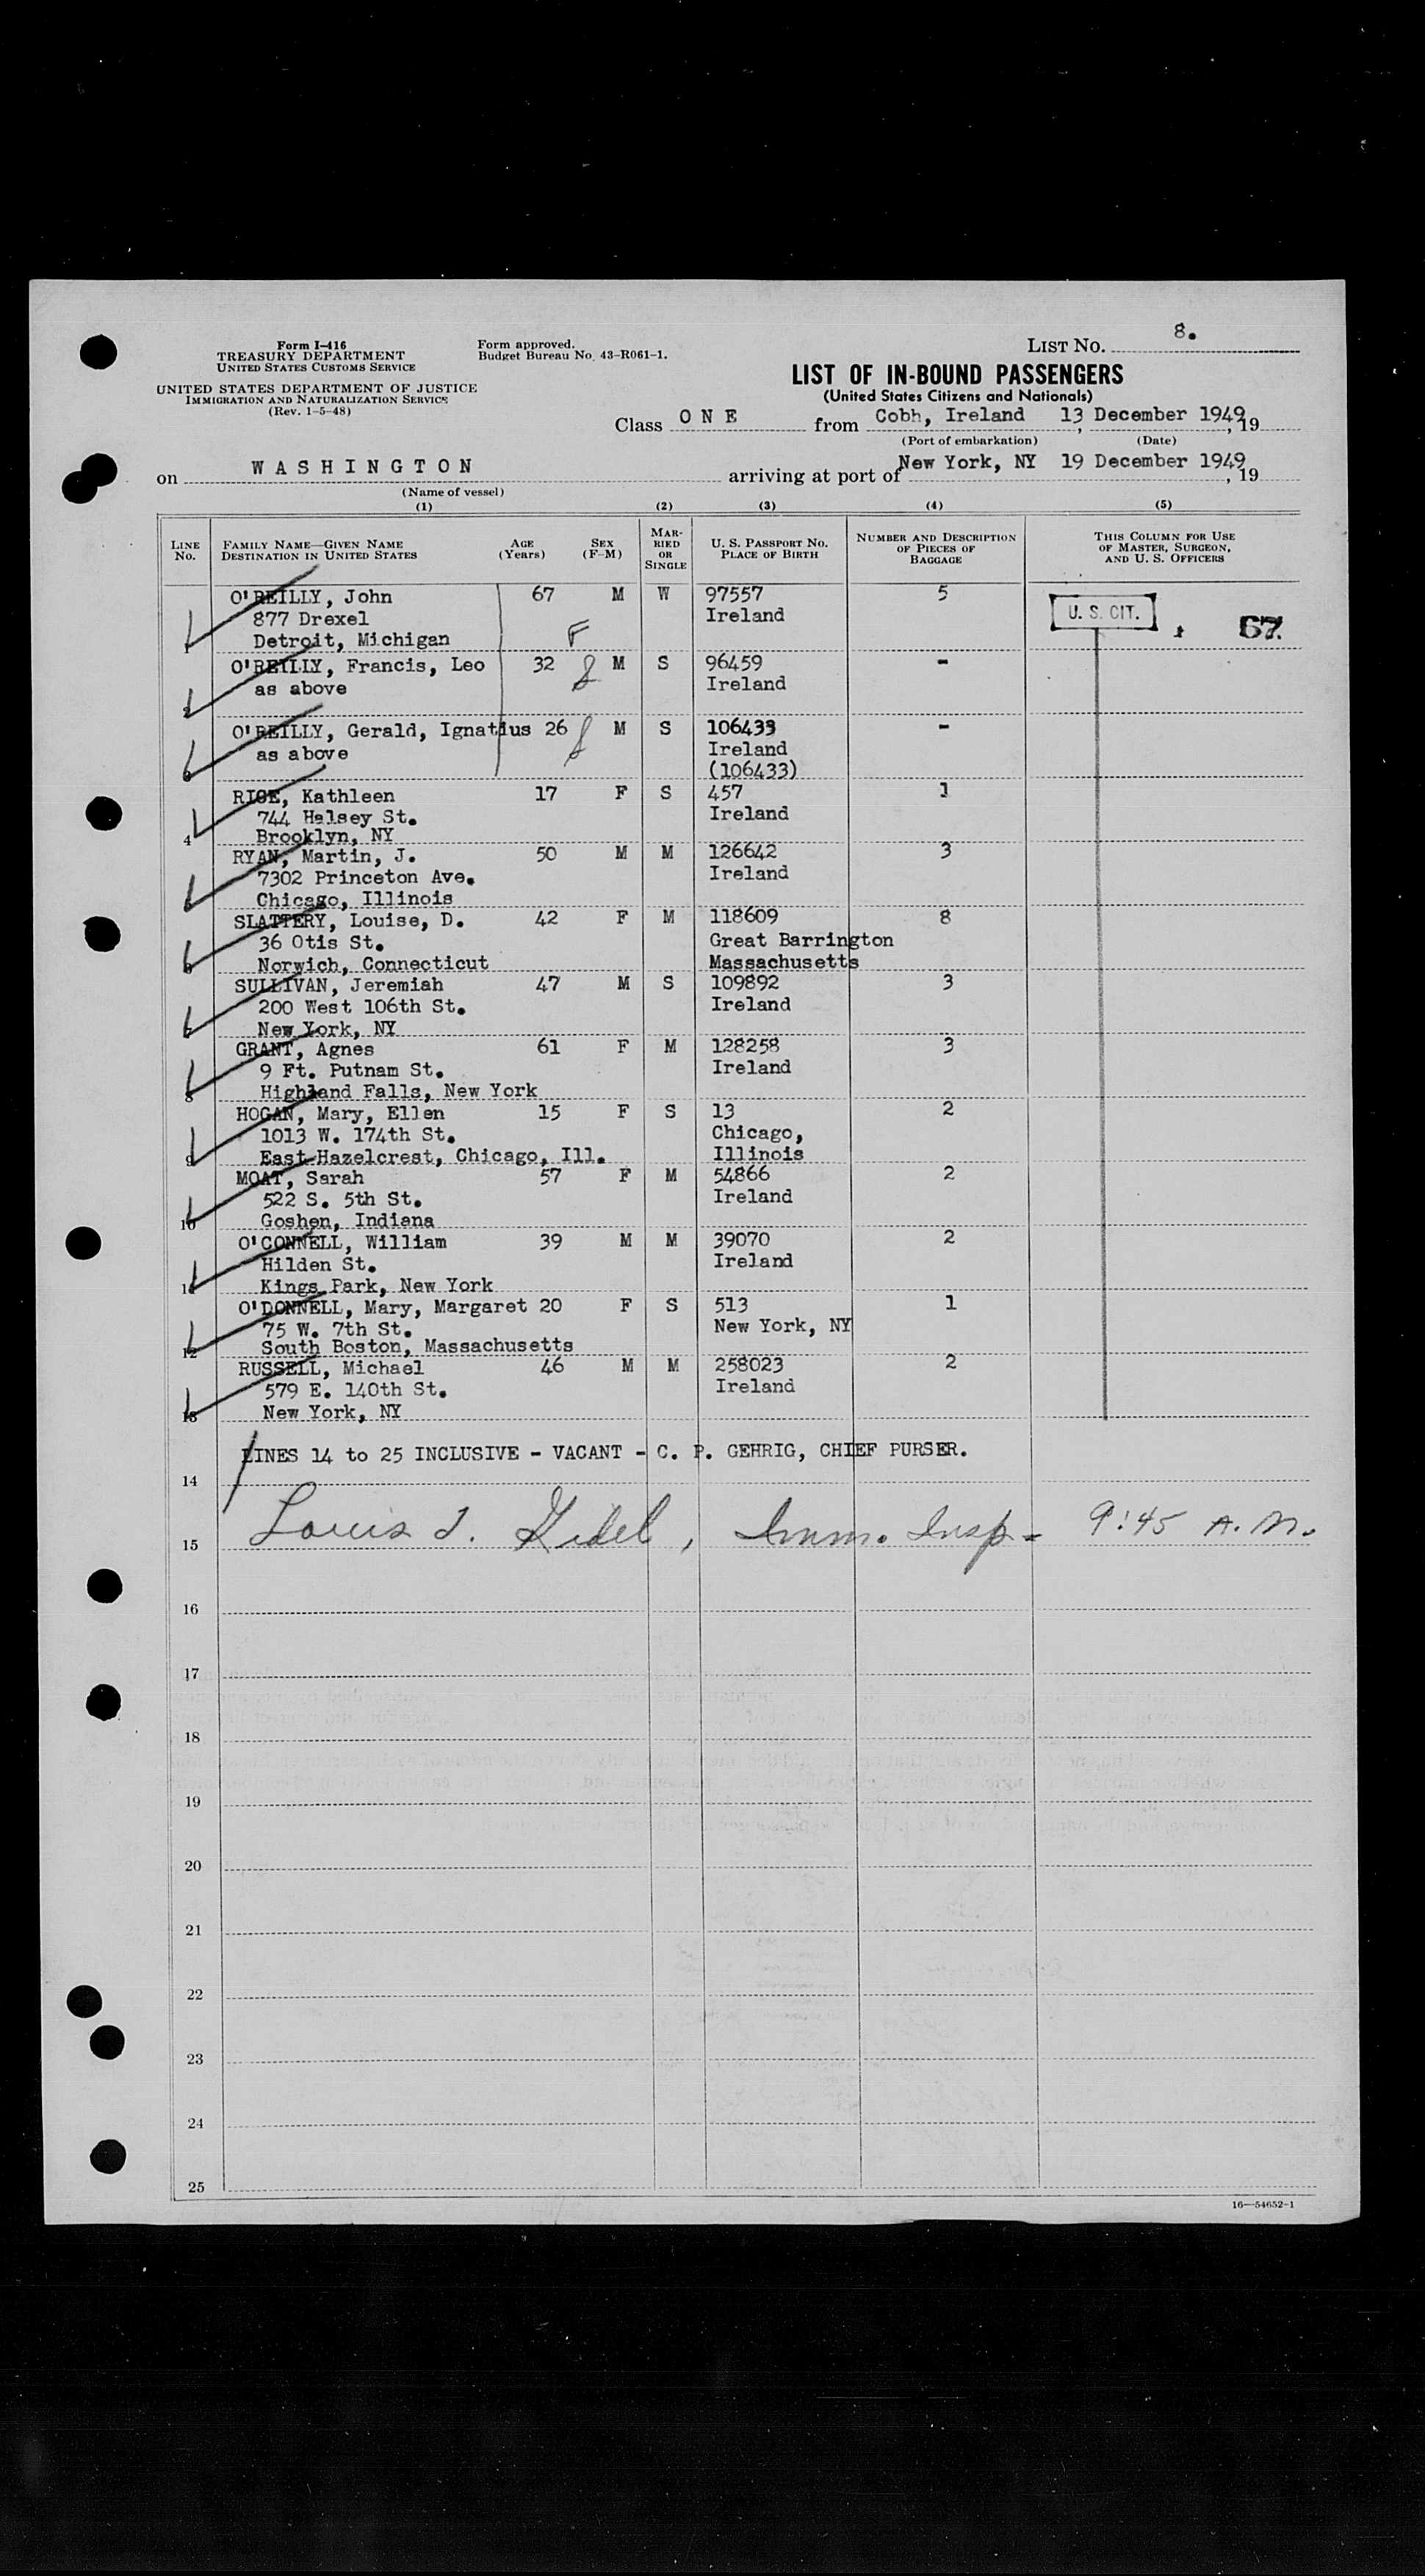 8.
Form I-416
TREASURY DEPARTMENT
UNITED STATES CUSTOMS SERVICE
UNITED STATES DEPARTMENT OF JUSTICE
IMMIGRATION AND NATURALIZATION SERVICE
(Rev. 1-5-48)
Form approved.
Budget Bureau No. 43-R061-1.
LIST NO.
LIST OF IN-BOUND PASSENGERS
(United States Citizens and Nationals)
Class O N E from Cobh, Ireland 13 December 1949, 19
(Port of embarkation) (Date)
on W A S H I N G T O N arriving at port of New York, NY 19 December 1949, 19
(Name of vessel)
(1) (2) (3) (4) (5)
LINE NO.
FAMILY NAME—GIVEN NAME
DESTINATION IN UNITED STATES
AGE (Years)
SEX (F-M)
MARRIED OR SINGLE
U. S. PASSPORT NO.
PLACE OF BIRTH
NUMBER AND DESCRIPTION OF PIECES OF BAGGAGE
THIS COLUMN FOR USE OF MASTER, SURGEON, AND U. S. OFFICERS
O'REILLY, John 67 M W 97557 5
877 Drexel Ireland U. S. CIT. 67
1 Detroit, Michigan F
O'REILLY, Francis, Leo 32 M S 96459 -
as above Ireland
2
O'REILLY, Gerald, Ignatius 26 M S 106433 -
as above Ireland
3 (106433)
RICE, Kathleen 17 F S 457 1
744 Halsey St. Ireland
4 Brooklyn, NY
RYAN, Martin, J. 50 M M 126642 3
7302 Princeton Ave. Ireland
5 Chicago, Illinois
SLATTERY, Louise, D. 42 F M 118609 8
36 Otis St. Great Barrington
6 Norwich, Connecticut Massachusetts
SULLIVAN, Jeremiah 47 M S 109892 3
200 West 106th St. Ireland
7 New York, NY
GRANT, Agnes 61 F M 128258 3
9 Ft. Putnam St. Ireland
8 Highland Falls, New York
HOGAN, Mary, Ellen 15 F S 13 2
1013 W. 174th St. Chicago,
9 East Hazelcrest, Chicago, Ill. Illinois
MOAT, Sarah 57 F M 54866 2
522 S. 5th St. Ireland
10 Goshen, Indiana
O'CONNELL, William 39 M M 39070 2
Hilden St. Ireland
11 Kings Park, New York
O'DONNELL, Mary, Margaret 20 F S 513 1
75 W. 7th St. New York, NY
12 South Boston, Massachusetts
RUSSELL, Michael 46 M M 258023 2
579 E. 140th St. Ireland
13 New York, NY
LINES 14 to 25 INCLUSIVE - VACANT - C. P. GEHRIG, CHIEF PURSER.
14
15 Louis J. Gidel, Imm. Insp- 9:45 A.M.
16
17
18
19
20
21
22
23
24
25
16—54652-1